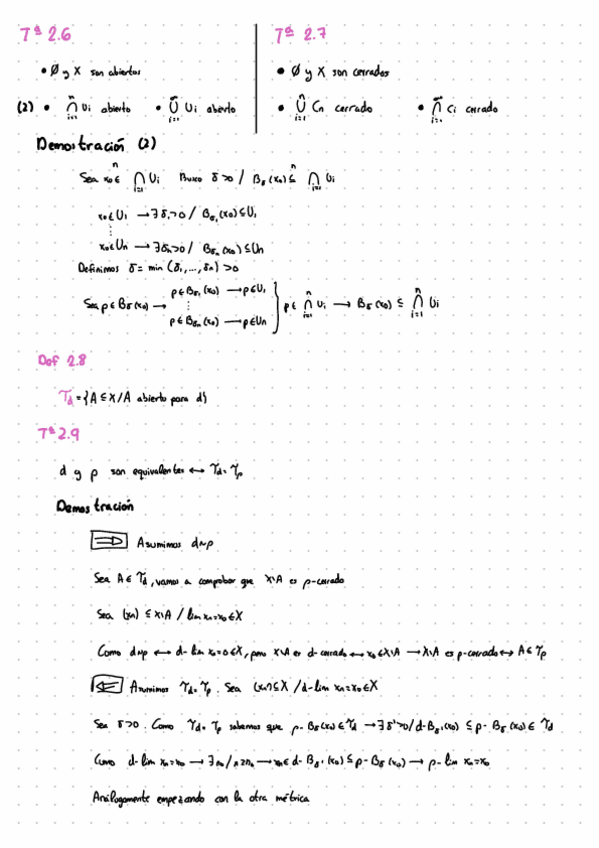 Tª 2.6
• Ø y X son abiertos
(2) • ⋂ᵢ₌₁ⁿ Uᵢ abierto • ⋃ᵢ₌₁^∞ Uᵢ abierto
Tª 2.7
• Ø y X son cerrados
• ⋃ᵢ₌₁ⁿ Cₙ cerrado • ⋂ᵢ₌₁^∞ Cᵢ cerrado
Demostración (2)
Sea x₀ ∈ ⋂ᵢ₌₁ⁿ Uᵢ Busco δ>0 / B_δ(x₀) ⊆ ⋂ᵢ₌₁ⁿ Uᵢ
x₀∈U₁ → ∃δ₁>0 / B_δ₁(x₀) ⊆ U₁
⋮
x₀∈Uₙ → ∃δₙ>0 / B_δₙ(x₀) ⊆ Uₙ
Definimos δ = min (δ₁,...,δₙ) >0
Sea p∈B_δ(x₀) → p∈B_δ₁(x₀) → p∈U₁ ⋮ p∈B_δₙ(x₀) → p∈Uₙ } p ∈ ⋂ᵢ₌₁ⁿ Uᵢ → B_δ(x₀) ⊆ ⋂ᵢ₌₁ⁿ Uᵢ
Def 2.8
T_d = {A ⊆ X / A abierto para d}
Tª 2.9
d y ρ son equivalentes ↔ T_d = T_ρ
Demostración
⇒ Asumimos d~ρ
Sea A ∈ T_d, vamos a comprobar que X\A es ρ-cerrado
Sea (xₙ) ⊆ X\A / lim xₙ = x₀ ∈ X
Como d~ρ ↔ d-lim xₙ=0∈X, pero X\A es d-cerrado ↔ x₀∈X\A → X\A es ρ-cerrado ↔ A∈T_ρ
⇐ Asumimos T_d = T_ρ. Sea (xₙ) ⊆ X / d-lim xₙ = x₀ ∈ X
Sea δ>0. Como T_d = T_ρ sabemos que ρ-B_δ(x₀) ∈ T_d → ∃δ'>0 / d-B_δ'(x₀) ⊆ ρ-B_δ(x₀) ∈ T_d
Como d-lim xₙ=x₀ → ∃n₀ / n≥n₀ → xₙ∈ d-B_δ'(x₀) ⊆ ρ-B_δ(x₀) → ρ-lim xₙ=x₀
Análogamente empezando con la otra métrica